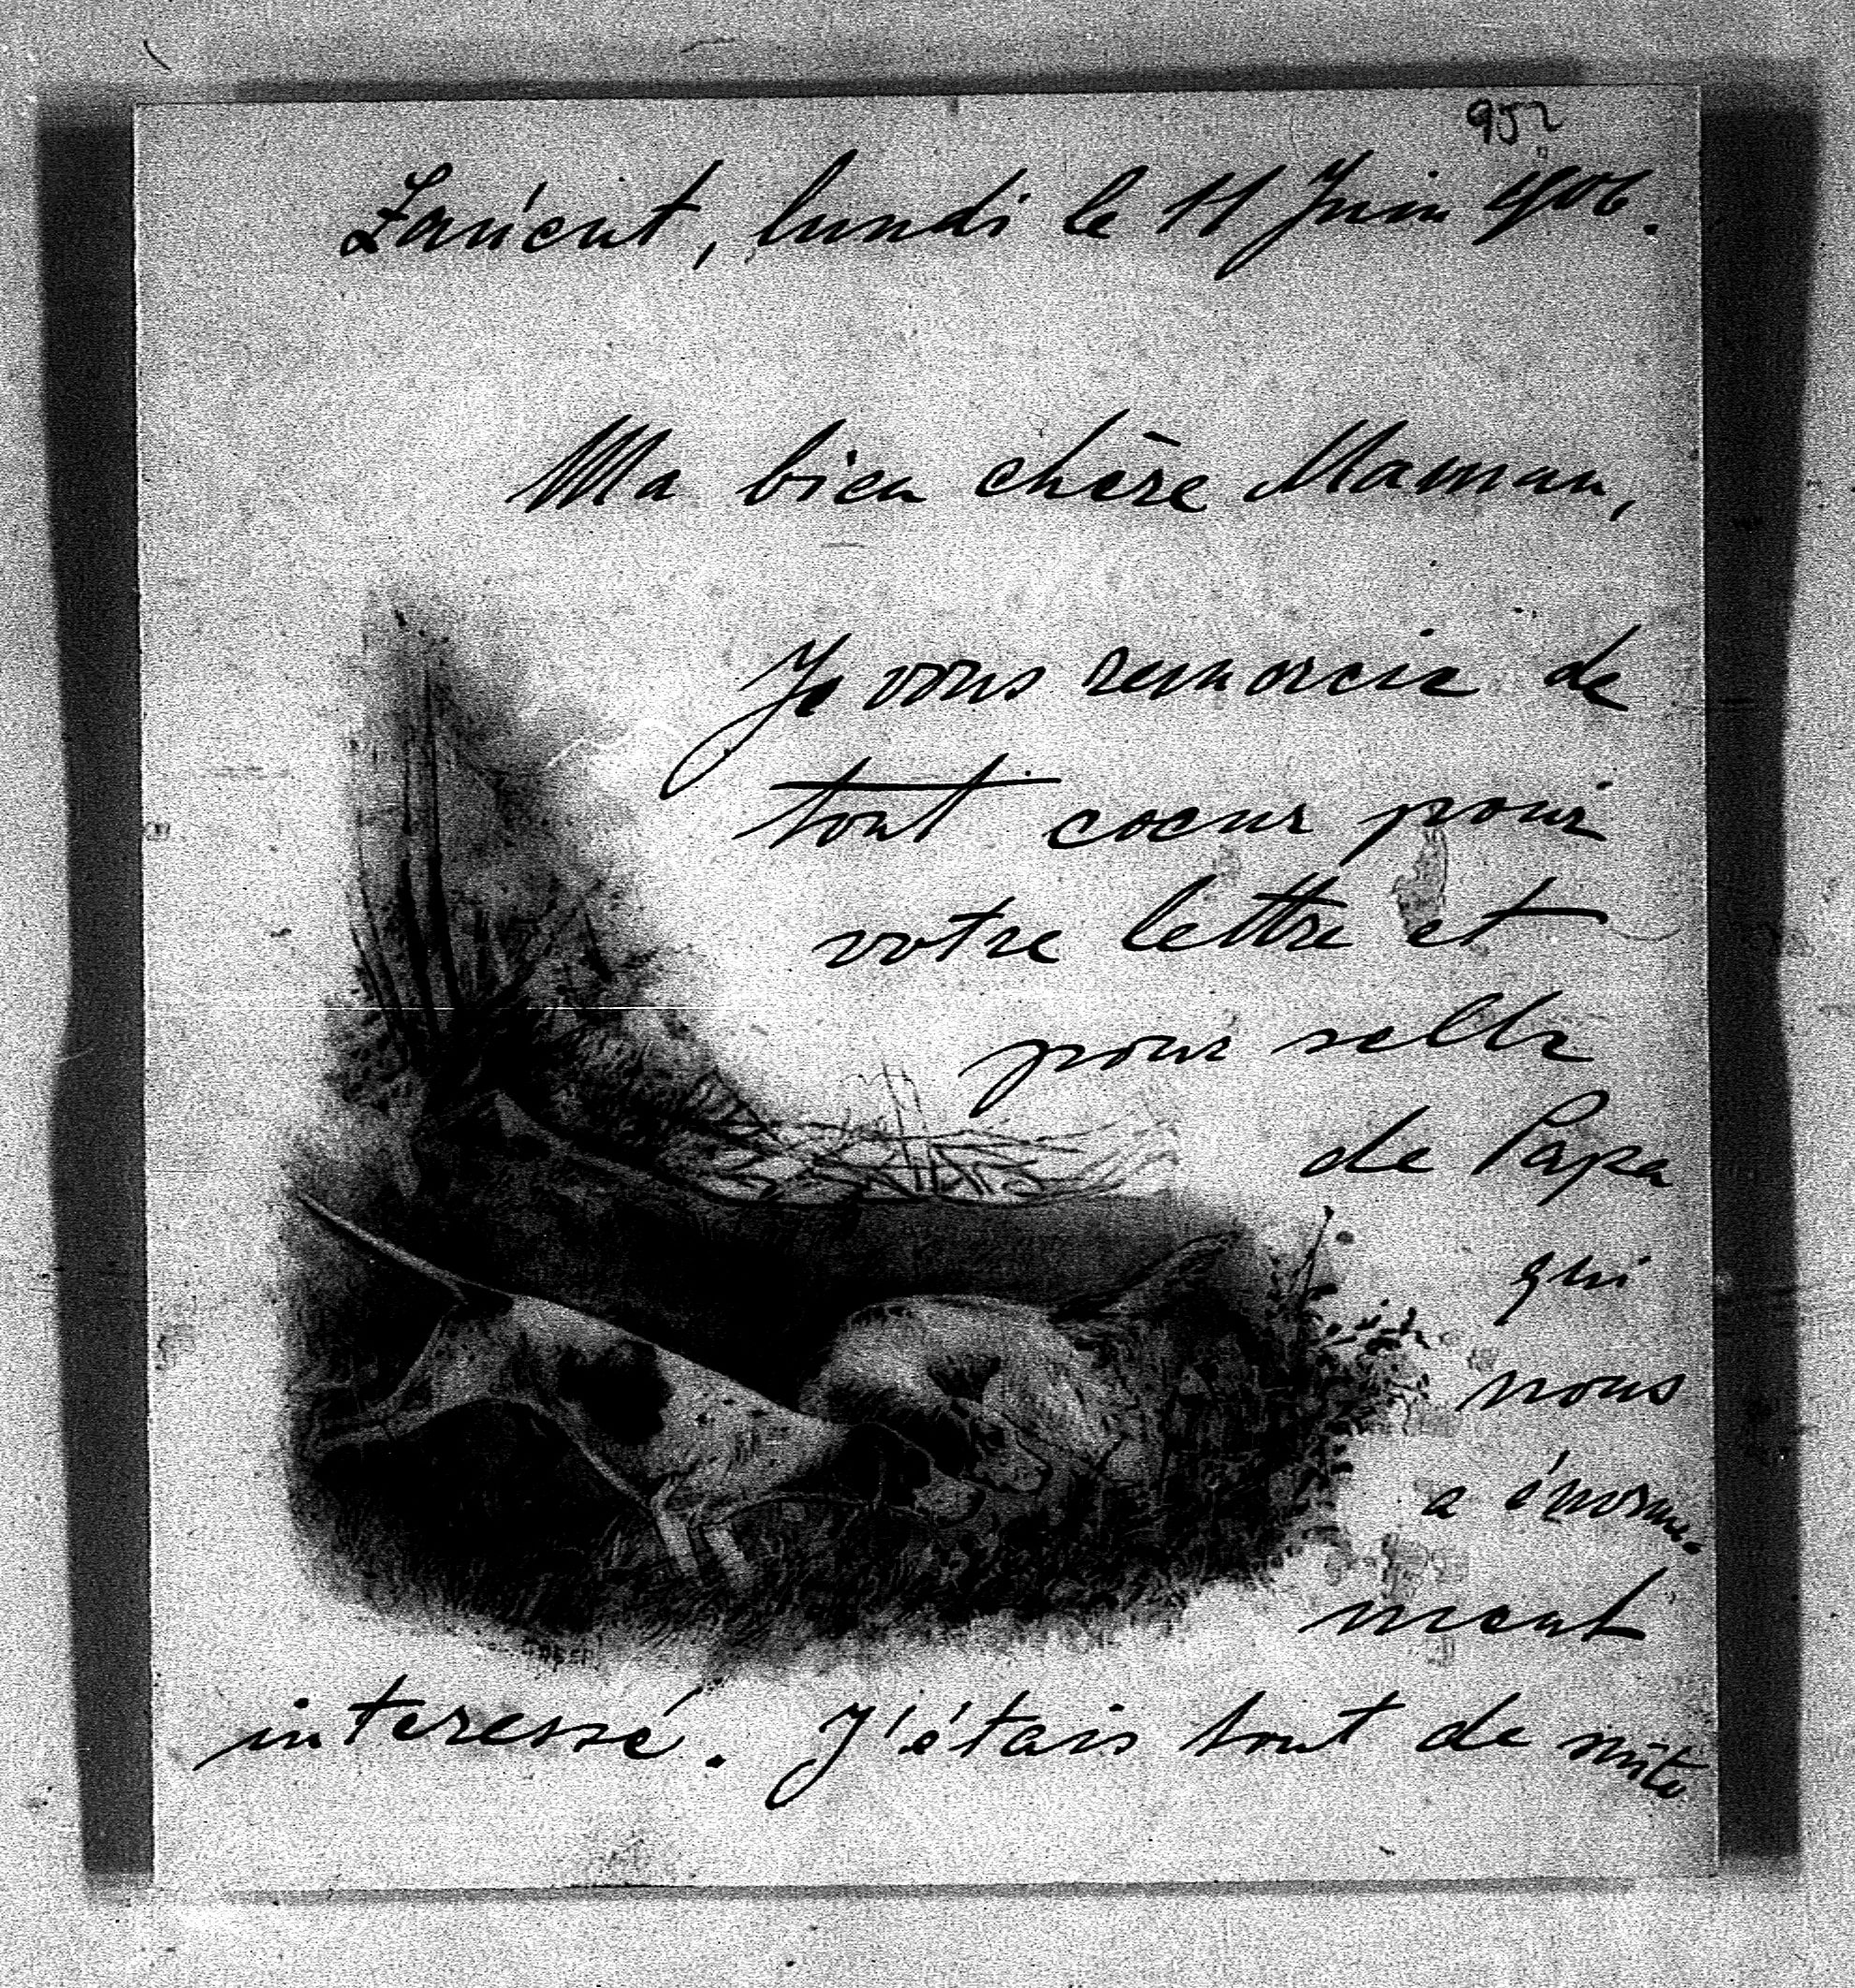 95?
lundi le 11 Juin 1906.
Ma bien chère Maman,
Je vous remercie de
tout coeur pour
votre lettre et
pour celle
de Papa
qui
nous
a énorme-
ment
interessé. J'étais tout de suite